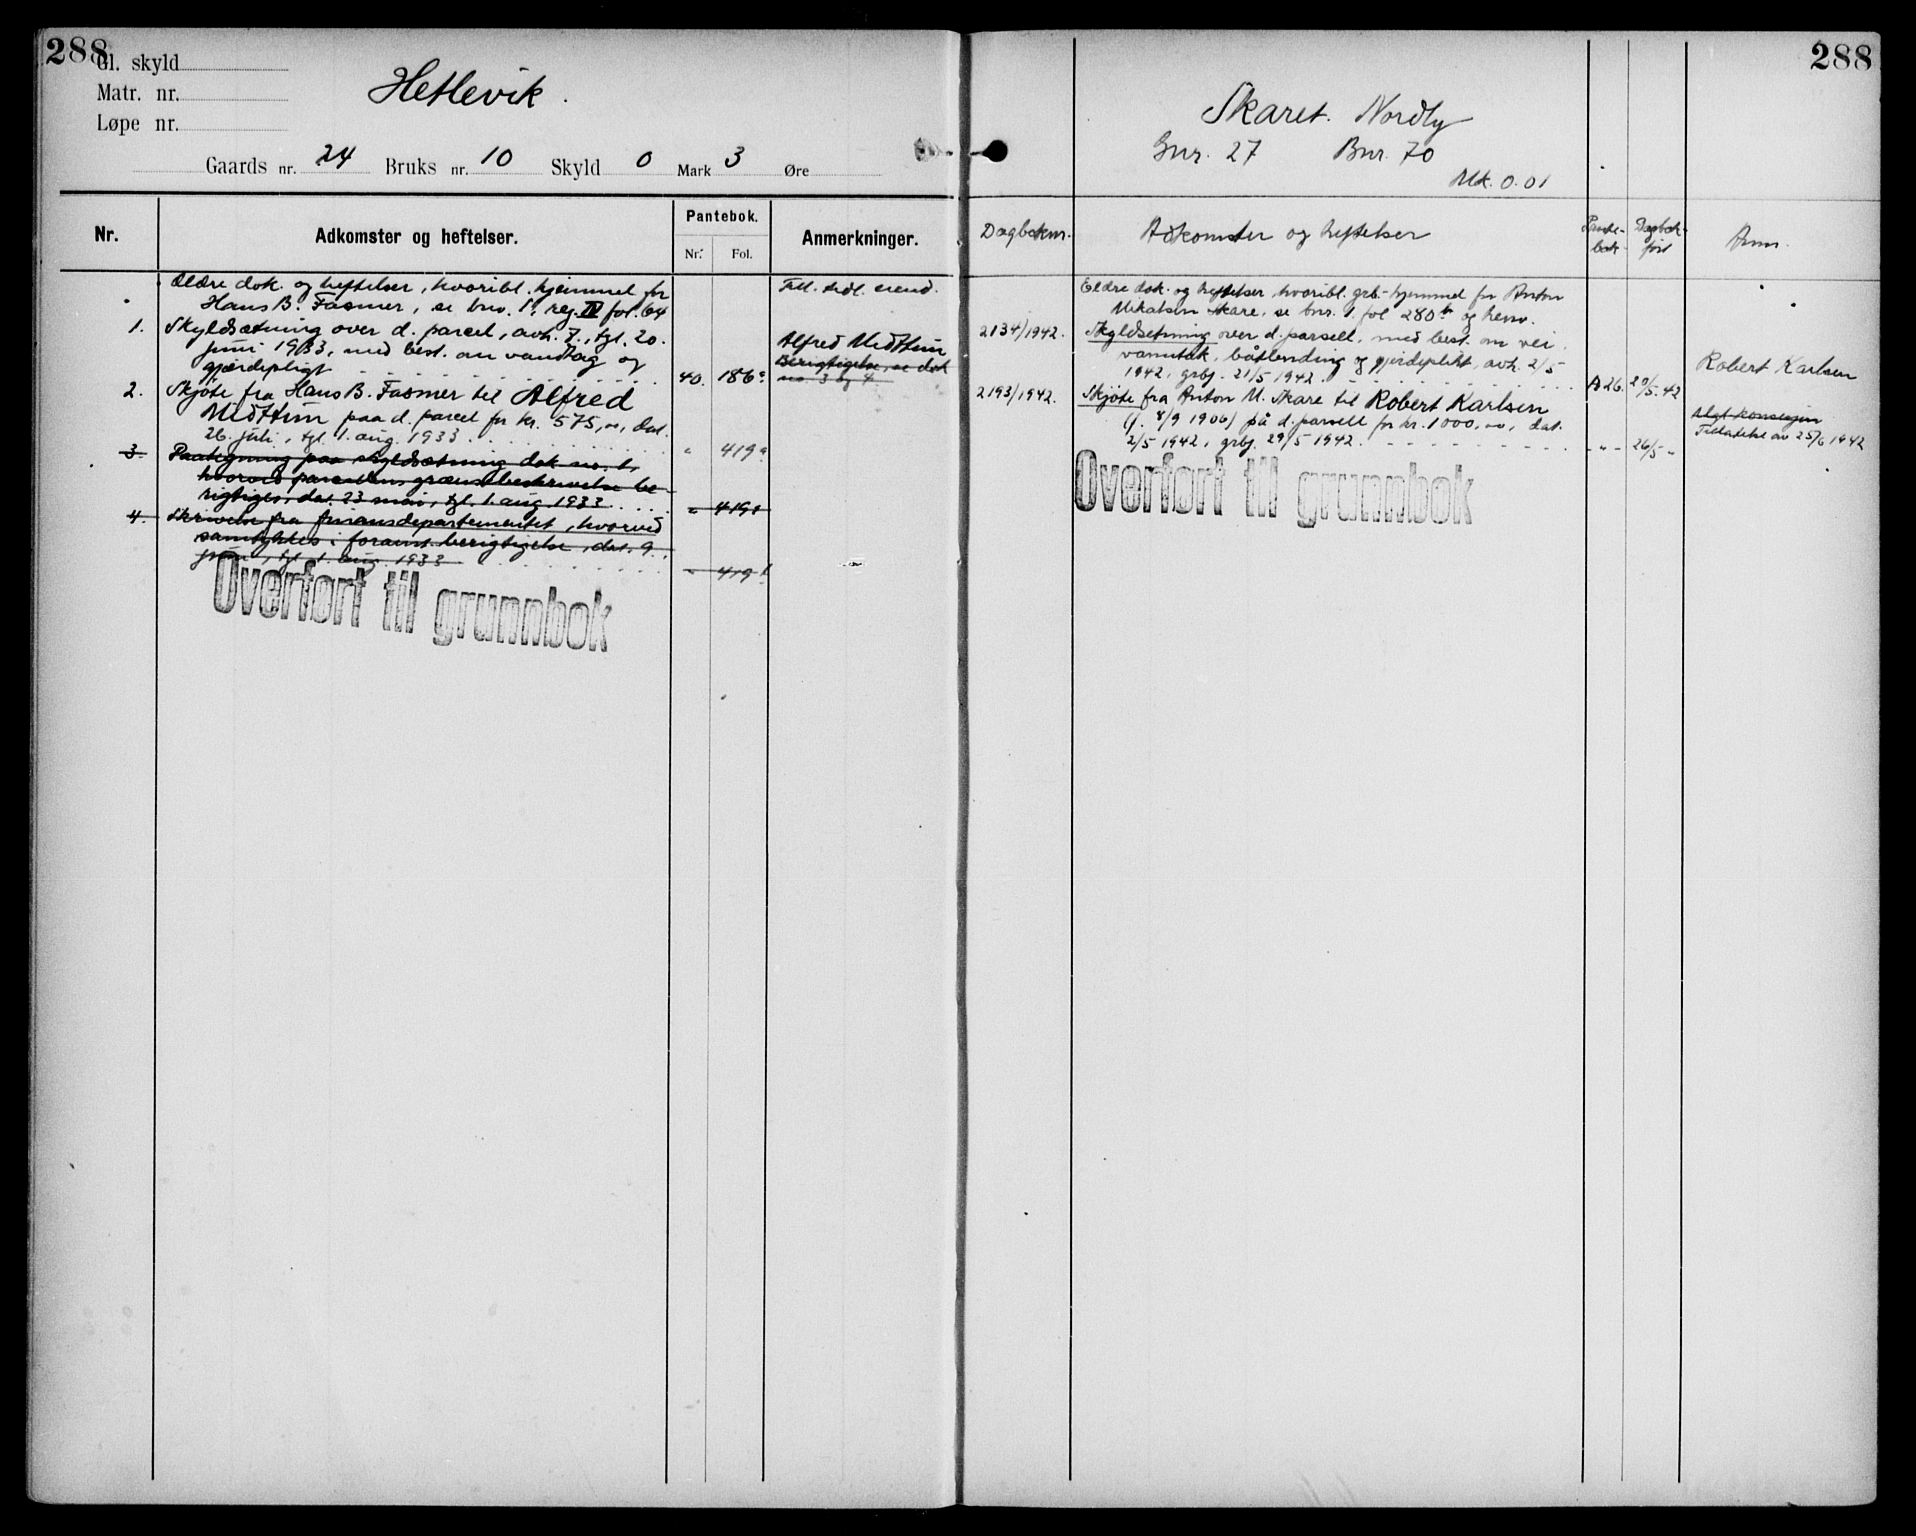 288
Gl. skyld
Matr. nr.
Løpe nr.
Hetlevik.
Gaards nr. 24 Bruks nr. 10 Skyld 0 Mark 3 Øre
Nr.
Adkomster og heftelser.
Pantebok.
Nr. Fol.
Anmerkninger.
Ældre dok. og heftelser, hvoribl. hjemmel for
Hans B. Fasmer, se bnr. 1, reg. IV fol. 64
1. Skyldsætning over d. parcel, avh. 7., tgl. 20.
juni 1933, med best. om vandtag og
gjærdepligt 40. 186
2. Skjöte fra Hans B. Fasmer til Alfred
Midttun paa d. parcel for kr. 575,00, dat.
26. juli, tgl. 1. aug. 1933 " 419
3. Paategning paa skyldsætning dok no. 1,
hvorved parcellens grænsebeskrivelse be-
rigtiges, dat. 23 mai, tgl. 1. aug. 1933 " 419
4. Skrivelse fra finansdepartementet, hvorved
samtykkes i foranst. berigtigelse, dat. 9.
juni, tgl. 1. aug. 1933 " 419
Till. eiend.
Alfred Midttun
Berigtigelse, se dok
no. 3 og 4
Overført til grunnbok
288
Skaret. Nordly
Gnr. 27 Bnr. 70
Mk. 0.01
Dagboknr.
Adkomster og heftelser
Pante-
bok
Dagbok-
ført
Anm.
Eldre dok. og heftelser, hvoribl. grb.-hjemmel for Anton
Mikalsen Skare, se bnr. 1 fol 280 og henv.
2134/1942. Skyldsetning over d. parsell, med best. om vei,
vanntak, båtlending og gjerdeplikt, avh. 2/5
1942, grbf. 21/5 1942. A 26. 20/5.42
Robert Karlsen
2193/1942. Skjöte fra Anton M. Skare til Robert Karlsen
(f. 8/9 1906) på d. parsell for kr. 1000,00, dat.
2/5 1942, grbf. 29/5 1942. - " - 26/5 -
Solgt konsesjon
Tillatelse av 25/6 1942
Overført til grunnbok